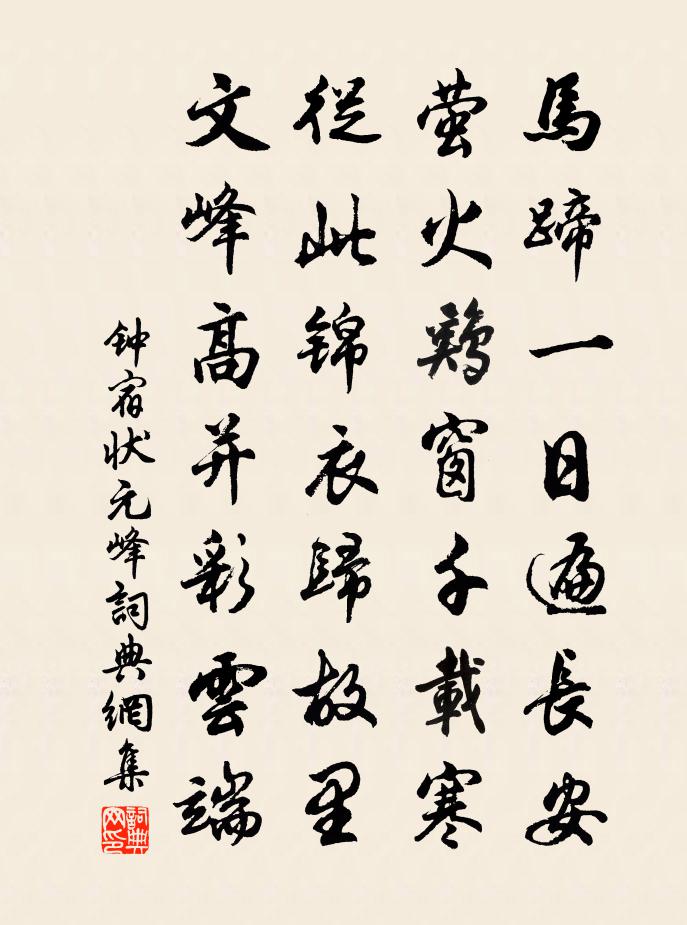 馬蹄一日遍長安
萤火鷄窗千載寒
從此錦衣歸故里
文峰高并彩雲端
钟宿状元峰詞典網集
詞典网印